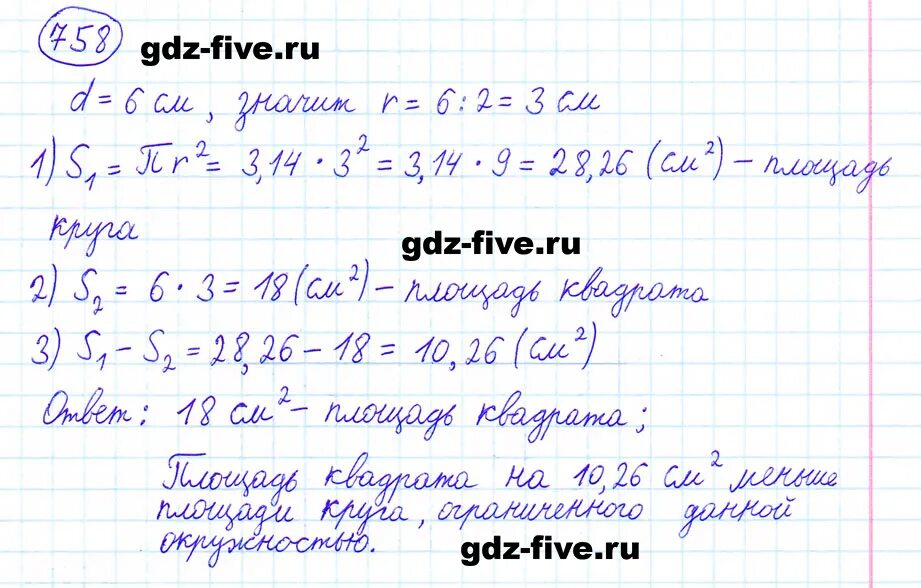 758 gdz-five.ru
d = 6 см, значит r = 6 : 2 = 3 см
1) S₁ = πr² = 3,14 · 3² = 3,14 · 9 = 28,26 (см²) – площадь
круга
gdz-five.ru
2) S₂ = 6 · 3 = 18 (см²) – площадь квадрата
3) S₁ – S₂ = 28,26 – 18 = 10,26 (см²)
Ответ: 18 см² – площадь квадрата;
Площадь квадрата на 10,26 см² меньше
площади круга, ограниченного данной
окружностью.
gdz-five.ru